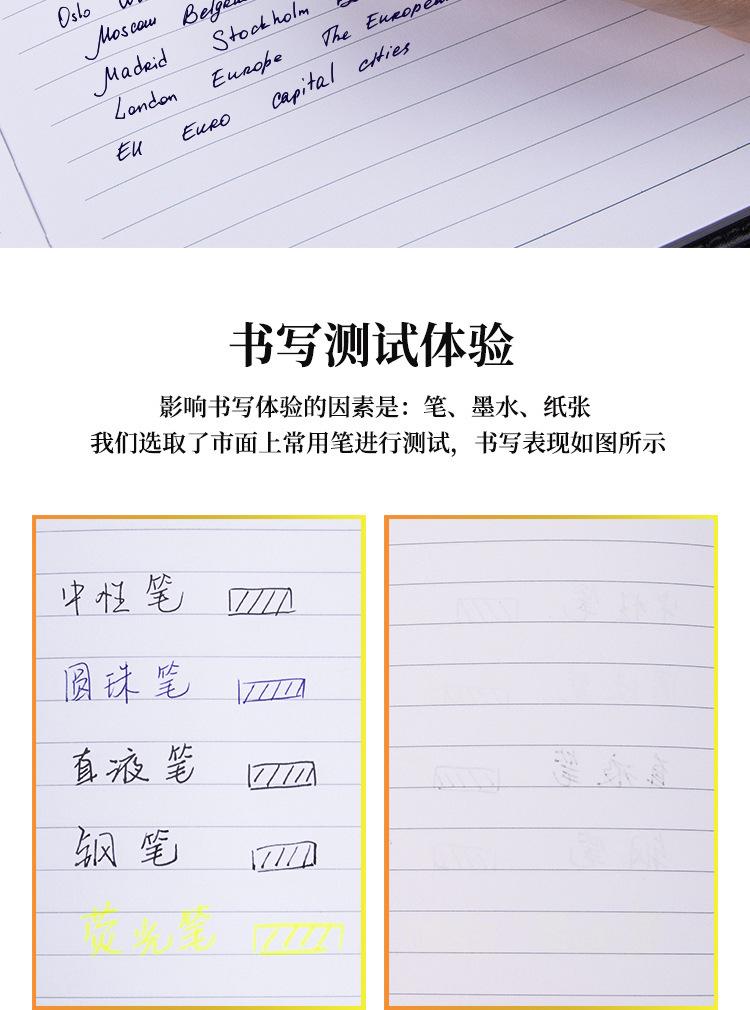 Oslo
Moscow
Madrid Stockholm
London Europe The European
EU EURO capital cities
书写测试体验
影响书写体验的因素是：笔、墨水、纸张
我们选取了市面上常用笔进行测试，书写表现如图所示
中性笔
圆珠笔
直液笔
钢笔
荧光笔
中性笔
直液笔
钢笔